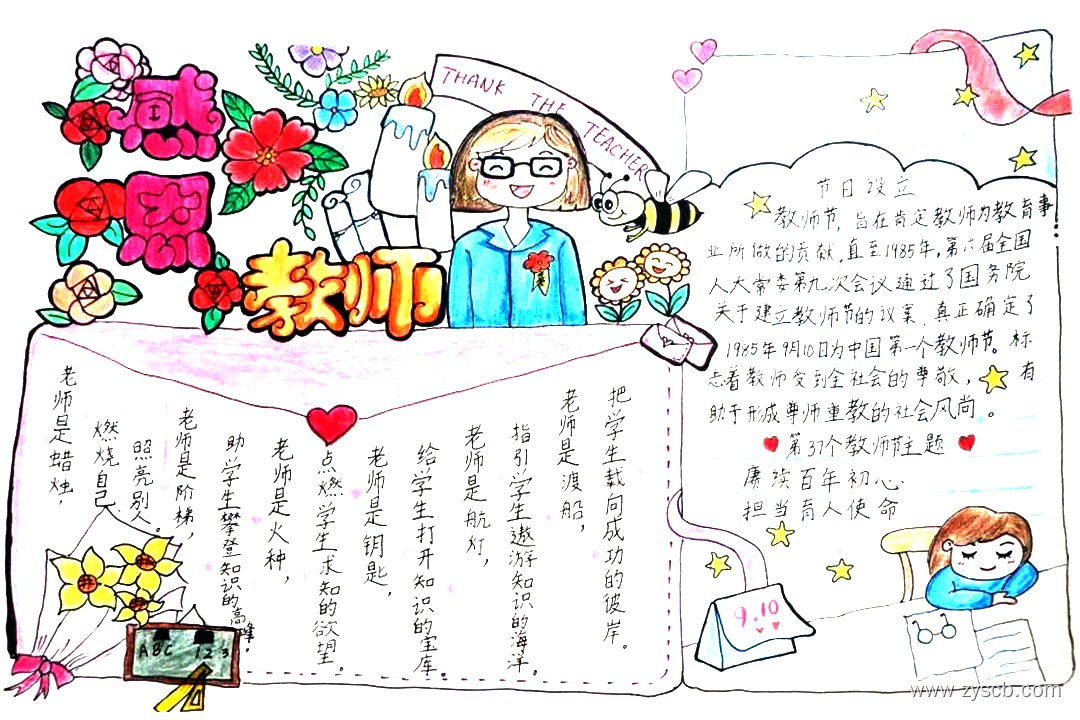 感恩
教师
THANK THE TEACHER
老师是蜡烛，
燃烧自己，
照亮别人。
老师是阶梯，
助学生攀登知识的高峰。
老师是火种，
点燃学生求知的欲望。
老师是钥匙，
给学生打开知识的宝库。
老师是航灯，
指引学生遨游知识的海洋。
老师是渡船，
把学生载向成功的彼岸。
ABC 123
节日设立
教师节，旨在肯定教师为教育事
业所做的贡献，直至1985年，第六届全国
人大常委第九次会议通过了国务院
关于建立教师节的议案，真正确定了
1985年9月10日为中国第一个教师节。标
志着教师受到全社会的尊敬，有
助于形成尊师重教的社会风尚。
第37个教师节主题
赓续百年初心
担当育人使命
9.10
www.zyscb.com